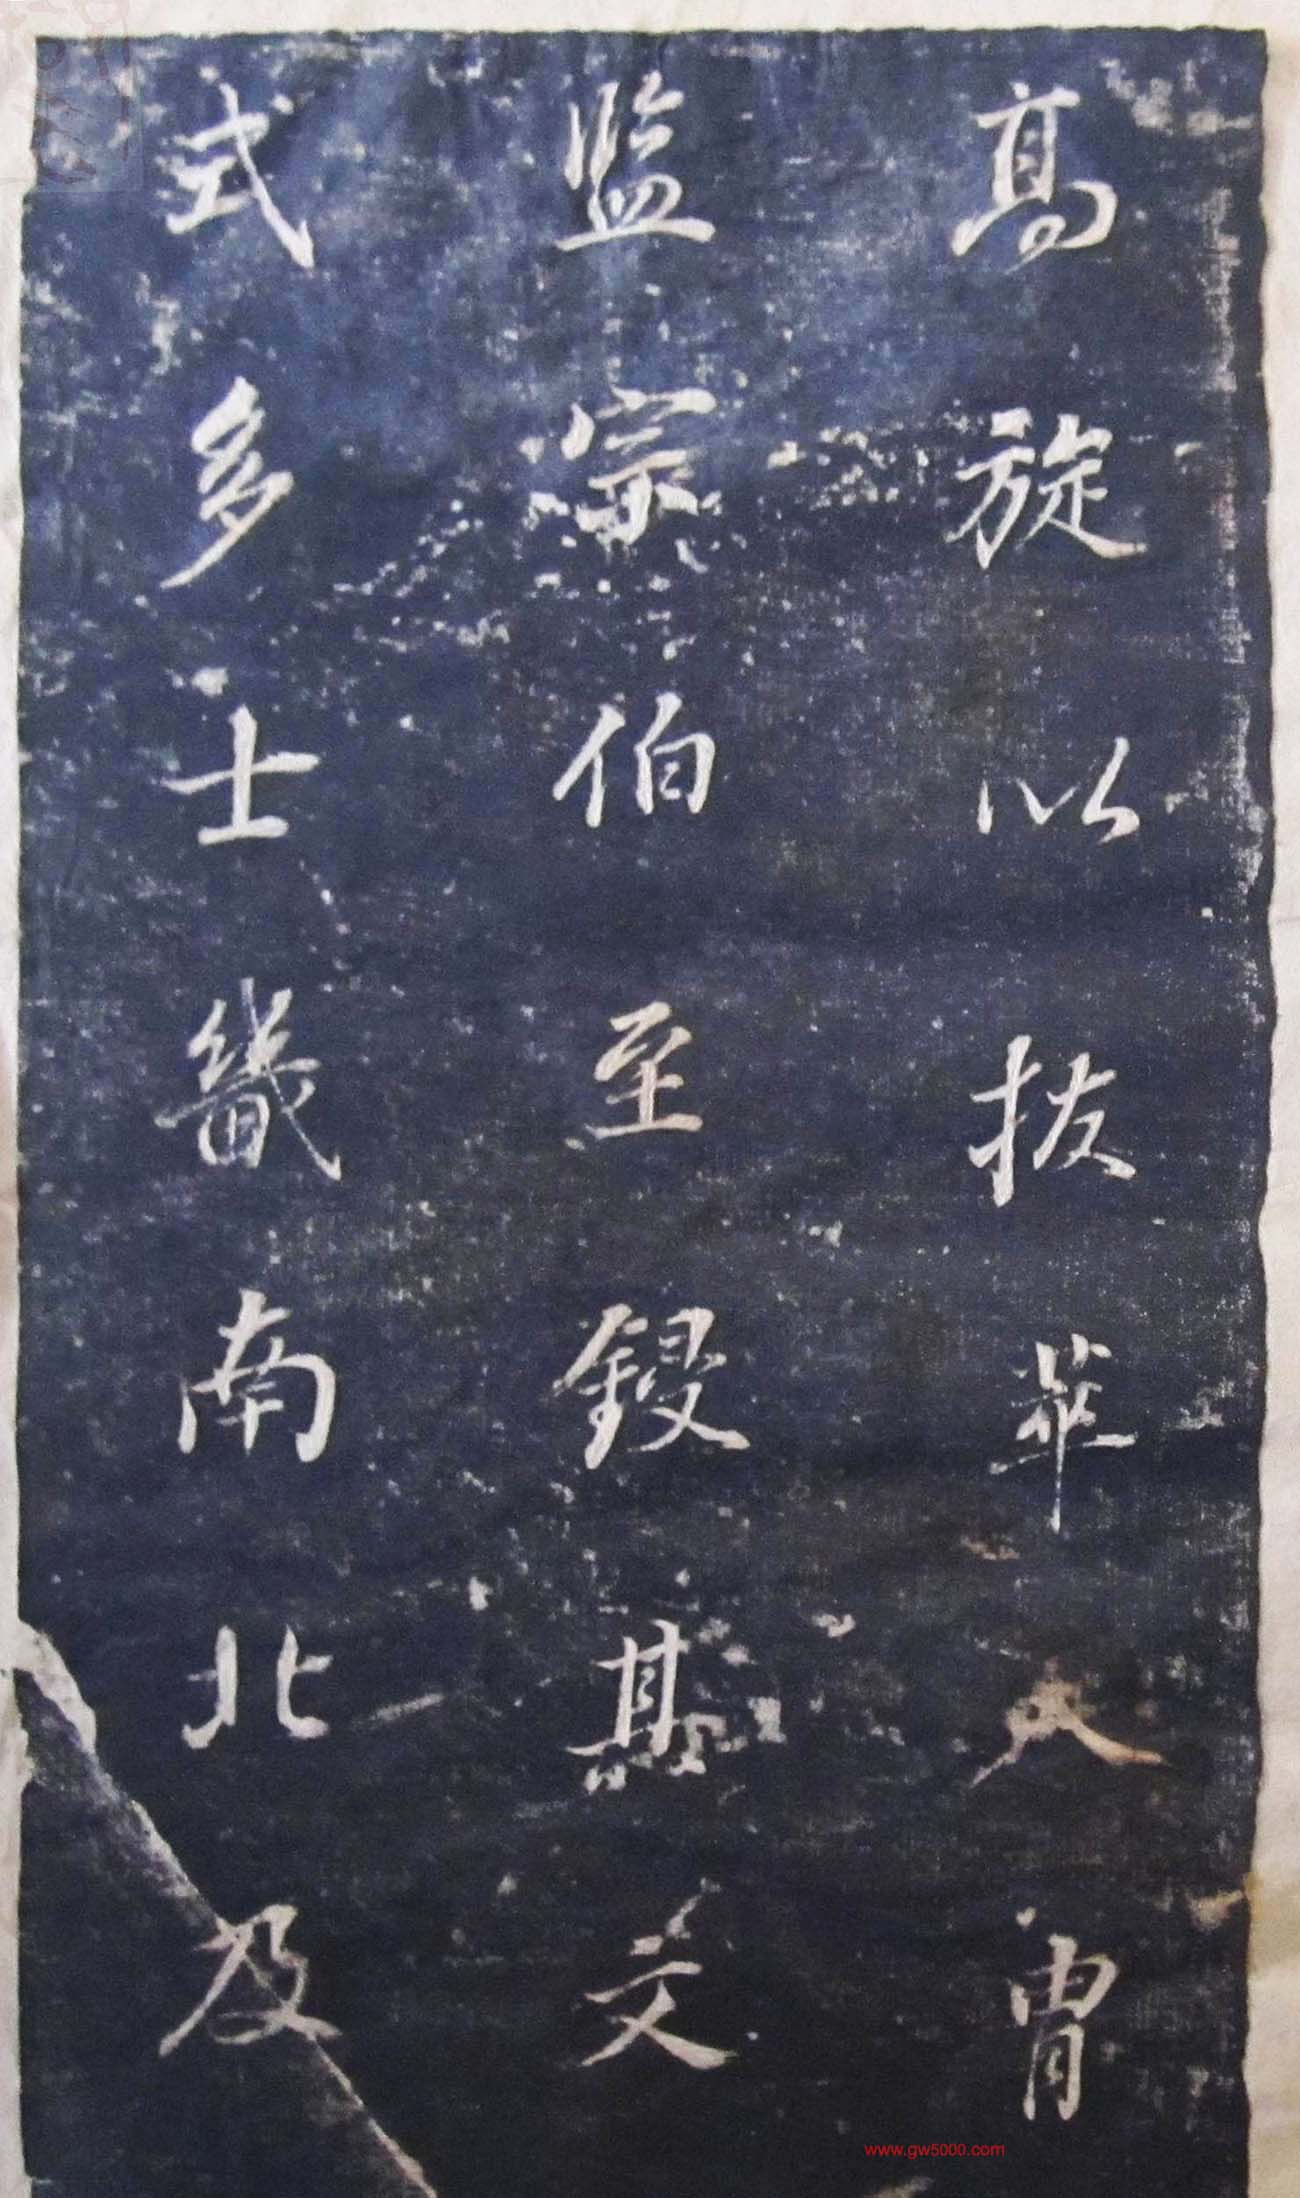 高旋以拔萃入胄
监宗伯至鋟其文
式多士畿南北及
www.gw5000.com